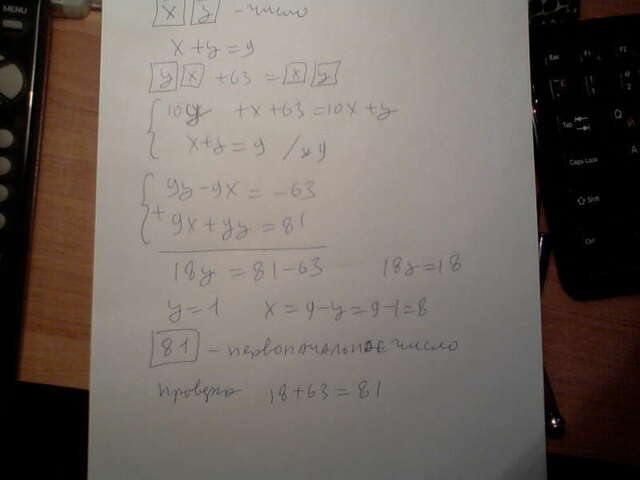 MENU
x y - число
x+y=9
y x +63 = x y
10y +x+63=10x+y
x+y=9 /x9
9y-9x=-63
+ 9x+9y=81
18y=81-63 18y=18
y=1 x=9-y=9-1=8
81 - первоначальное число
проверка 18+63=81
Esc
Tab
Caps Lock
Shift
Ctrl